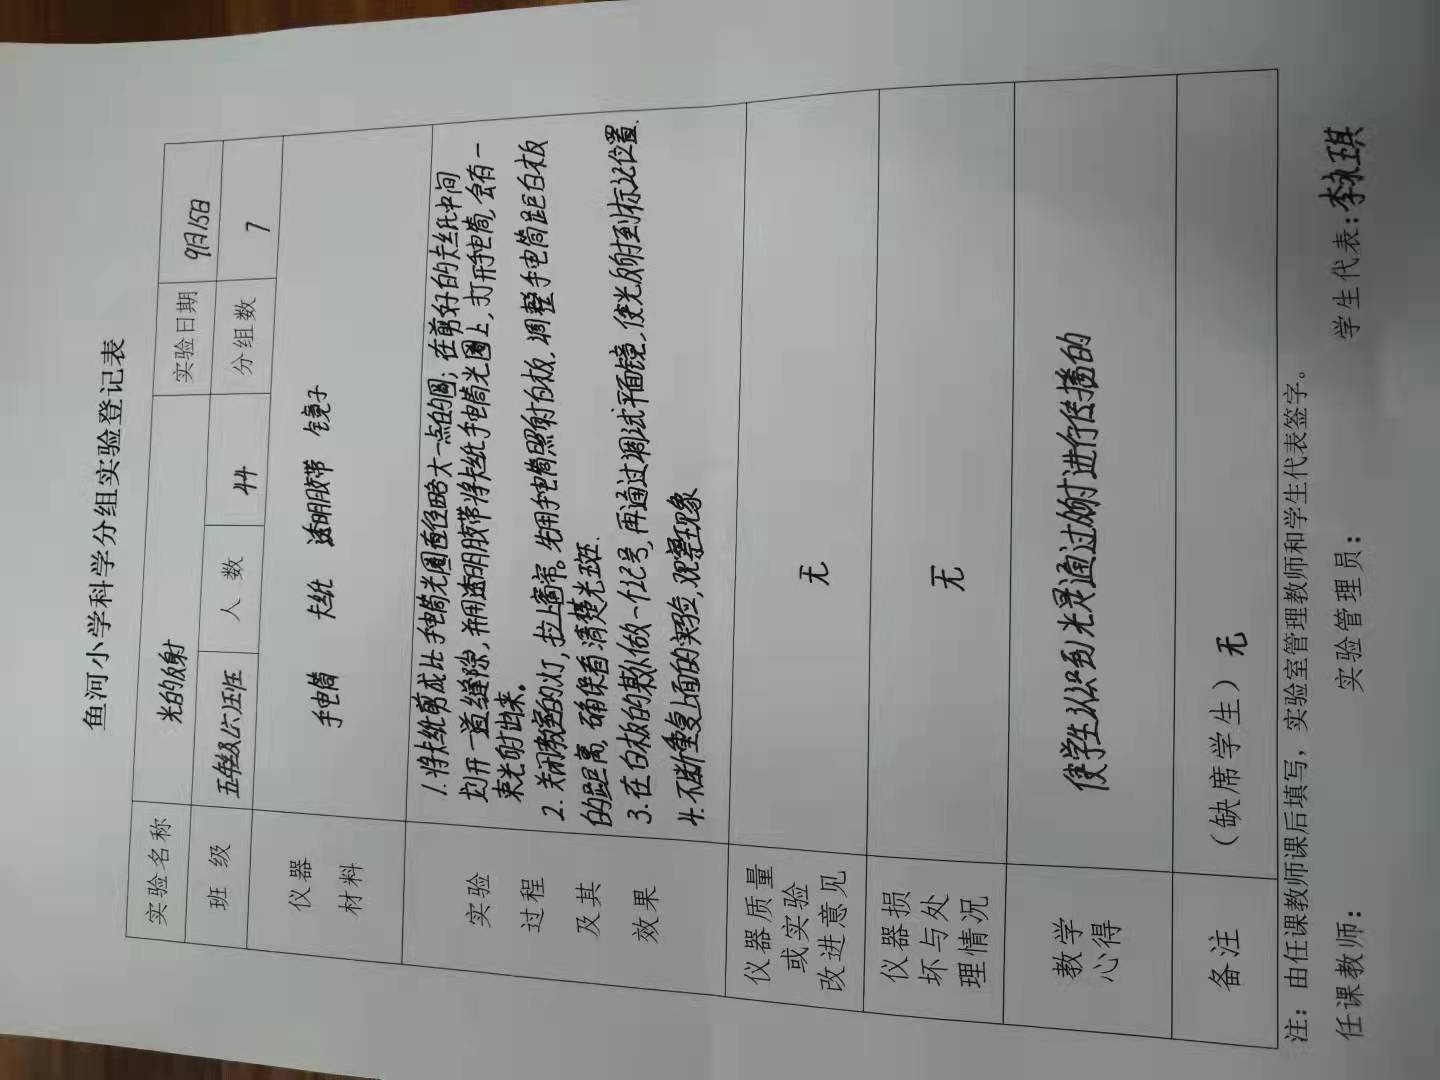 鱼河小学科学分组实验登记表
实验名称 光的反射 实验日期 9月15日
班级 五年级(六)班 人数 44 分组数 7
仪器
材料
手电筒 卡纸 透明胶带 镜子
实验
过程
及其
效果
1.将卡纸剪成比手电筒光圈直径略大一点的圆;在剪好的卡纸中间
划开一道缝隙,并用透明胶带将卡纸手电筒光圈上,打开手电筒,会有一
束光射出来。
2.关闭教室的灯,拉上窗帘。先用手电筒照射白板,调整手电筒距白板
的距离,确保看清楚光斑.
3.在白板的 做一个记号,再通过调试平面镜,使光反射到标记位置.
4.不断重复上面的实验,观察现象
仪器质量
或实验
改进意见
无
仪器损
坏与处
理情况
无
教学
心得
使学生认识到光是通过 进行传播的
备注 (缺席学生) 无
注:由任课教师课后填写,实验室管理教师和学生代表签字。
任课教师: 实验管理员: 学生代表:李永琪